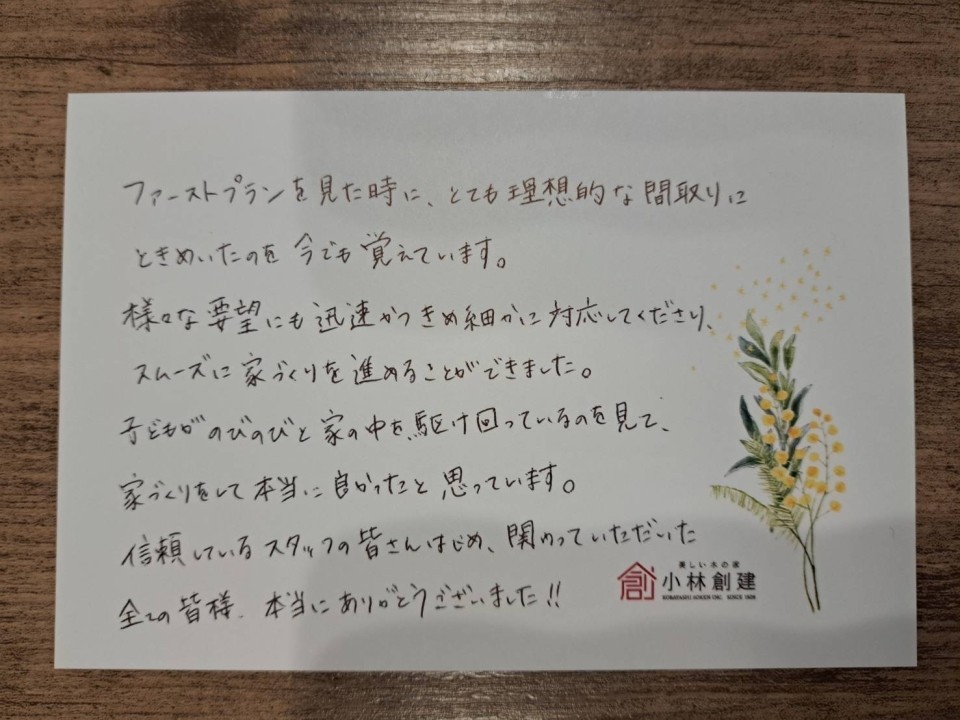 ファーストプランを見た時に、とても理想的な間取りに
ときめいたのを今でも覚えています。
様々な要望にも迅速かつきめ細かに対応してくださり、
スムーズに家づくりを進めることができました。
子どもがのびのびと家の中を駆け回っているのを見て、
家づくりをして本当に良かったと思っています。
信頼しているスタッフの皆さんはじめ、関わっていただいた
全ての皆様、本当にありがとうございました!!
美しい木の家
創 小林創建
KOBAYASHI SOKEN INC. SINCE 1926